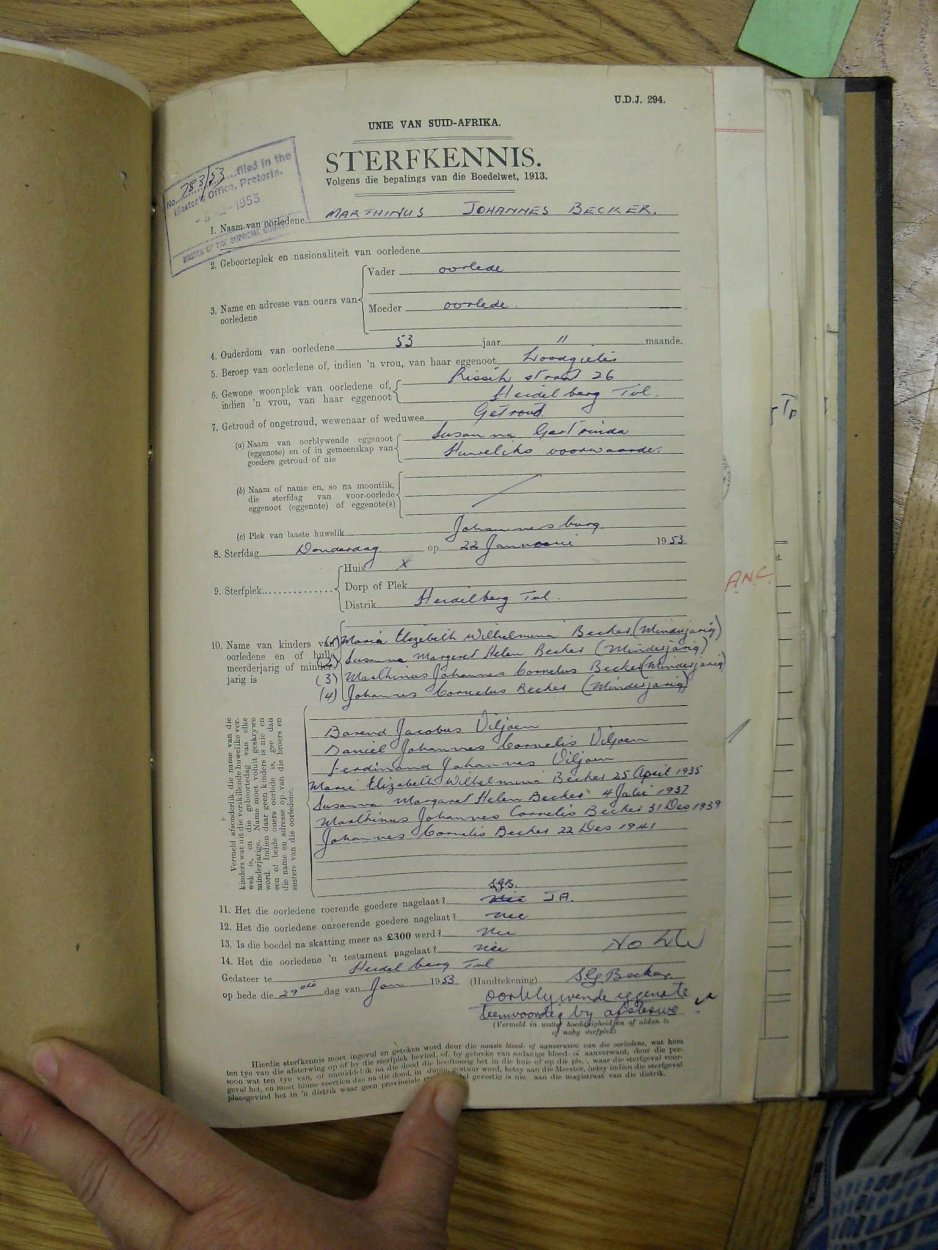 U.D.J. 294.
UNIE VAN SUID-AFRIKA.
STERFKENNIS.
Volgens die bepalings van die Boedelwet, 1913.
No. 783/53 filed in the
Master's Office, Pretoria.
1953
MASTER OF THE SUPREME COURT
1. Naam van oorledene MARTHINUS JOHANNES BECKER.
2. Geboorteplek en nasionaliteit van oorledene
3. Name en adresse van ouers van oorledene
Vader oorlede
Moeder oorlede.
4. Ouderdom van oorledene 53 jaar " maande.
5. Beroep van oorledene of, indien 'n vrou, van haar eggenoot Loodgieter
6. Gewone woonplek van oorledene of, indien 'n vrou, van haar eggenoot
Rissik straat 26
Heidelberg Tvl.
7. Getroud of ongetroud, wewenaar of weduwee Getroud
(a) Naam van oorblywende eggenoot (eggenote) en of in gemeenskap van goedere getroud of nie
Susanna Gertruida
Huweliks voorwaarde.
(b) Naam of name en, so na moontlik, die sterfdag van voor-oorlede eggenoot (eggenote) of eggenote(s)
(c) Plek van laaste huwelik Johannesburg.
8. Sterfdag Donderdag op 22 Januarie 1953
9. Sterfplek
Huis x
Dorp of Plek
Distrik Heidelberg Tvl.
A.N.C.
10. Name van kinders van oorledene en of hulle meerderjarig of minderjarig is
(1) Maria Elizabeth Wilhelmina Becker (Minderjarig)
(2) Susanna Margaret Helen Becker (Minderjarig)
(3) Marthinus Johannes Cornelus Becker (Minderjarig)
(4) Johannes Cornelus Becker (Minderjarig)
Vermeld afsonderlik die name van die
kinders wat uit die verskillende huwelike verwek is, en die geboortedag van elke
minderjarige. Name moet voluit geskrywe
word. Indien daar geen kinders is nie en
een of beide ouers oorlede is, gee dan
die name en adresse op van die broers en
susters van die oorledene.
Barend Jacobus Viljoen
Daniel Johannes Cornelis Viljoen
Ferdinand Johannes Viljoen
Maria Elizabeth Wilhelmina Becker 25 April 1935
Susanna Margaret Helen Becker 4 Julie 1937
Marthinus Johannes Cornelis Becker 31 Des 1939
Johannes Cornelis Becker 22 Des 1941
SGB.
11. Het die oorledene roerende goedere nagelaat? Nee JA.
12. Het die oorledene onroerende goedere nagelaat? nee
13. Is die boedel na skatting meer as £300 werd? Nee
14. Het die oorledene 'n testament nagelaat? nee
Gedateer te Heidelberg Tvl
op hede die 29ste dag van Jan 1953 (Handtekening) S G Becker
oorblywende eggenote
teenwoordig by afsterwe
(Vermeld in watter hoedanigheid en of aldan te
naby sterfplek)
Hierdie sterfkennis moet ingevul en geteken word deur die naaste bloed- of aanverwant van die oorledene, wat hom
ten tye van die afsterwing op of by die sterfplek bevind of, by gebreke van sodanige bloed- of aanverwant, deur die per-
soon wat ten tye van, of onmiddellik na die dood die hooftoesig het in die huis of op die plek, waar die sterfgeval voor-
geval het, en moet binne veertien dae na die dood, in gestuur word, hetsy aan die Meester, hetsy indien die sterfgeval
plaasgevind het in 'n distrik waar geen provinsiale gevestig is nie, aan die magistraat van die distrik.